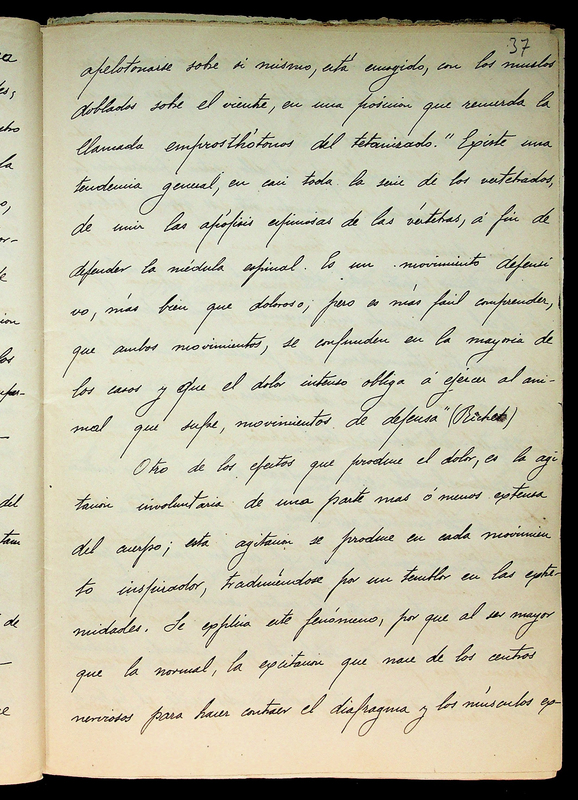 37
apelotonarse sobre si mismo, está encogido, con los muslos
doblados sobre el vientre, en una posicion que recuerda la
llamada emprosthótonos del tetanizado." Existe una
tendencia general, en casi toda la serie de los vertebrados,
de unir las apófisis espinosas de las vértebras, á fin de
defender la médula espinal. Es un movimiento defensi
vo, más bien que doloroso; pero es más facil comprender,
que ambos movimientos, se confunden en la mayoria de
los casos y que el dolor intenso obliga á ejercer al ani-
mal que sufre, movimientos de defensa" (Richet)
Otro de los efectos que produce el dolor, es la agi
tacion involuntaria de una parte mas ó menos extensa
del cuerpo; esta agitacion se produce en cada movimien
to inspirador, traduciéndose por un temblor en las extre-
midades. Se explica este fenómeno, por que al ser mayor
que la normal, la excitacion que nace de los centros
nerviosos para hacer contraer el diafragma y los músculos ex-